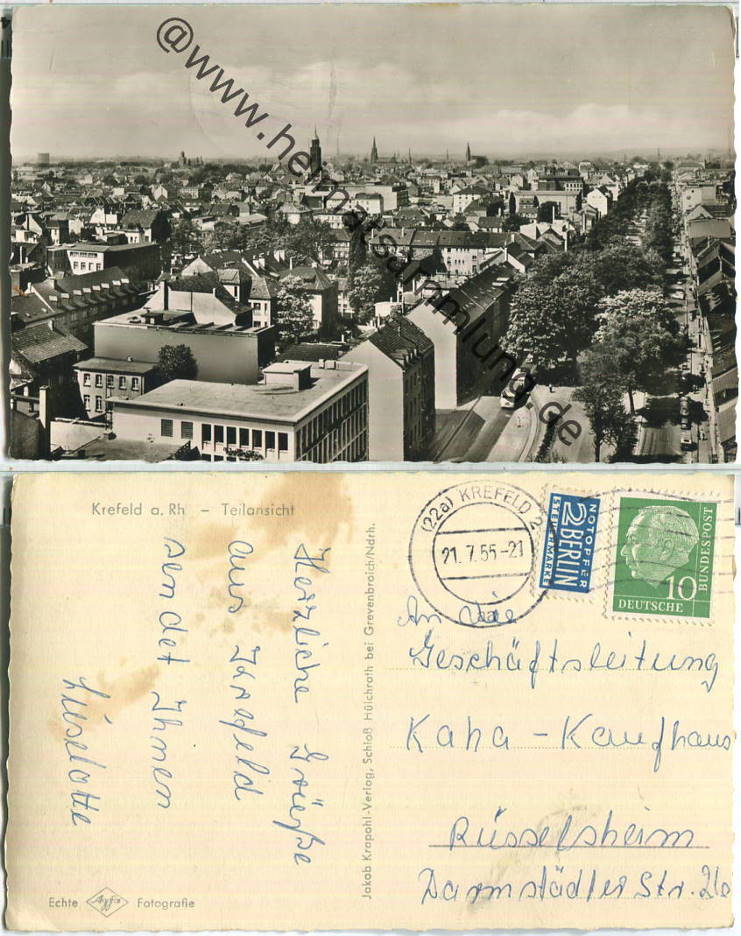 @www.heimatsammlung.de
Krefeld a. Rh – Teilansicht
Herzliche Grüße
aus Krefeld
sendet Ihnen
Liselotte
Echte Agfa Fotografie
Jakob Krapohl-Verlag, Schloß Hülchrath bei Grevenbroich/Ndrh.
(22a) KREFELD 2
21.7.55-21
NOTOPFER
2 BERLIN
STEUERMARKE
DEUTSCHE
BUNDESPOST
10
An die
Geschäftsleitung
Kaha - Kaufhaus
Rüsselsheim
Darmstädter Str.